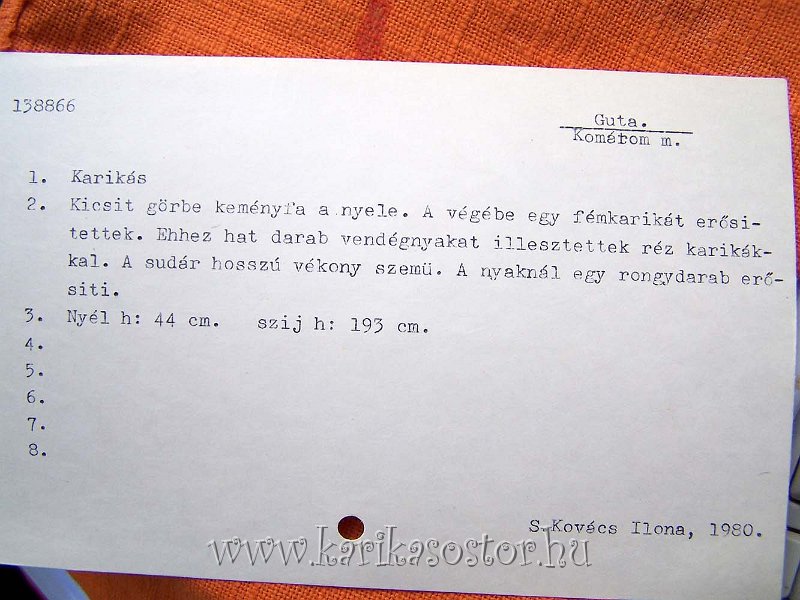 138866
Guta.
Komárom m.
1. Karikás
2. Kicsit görbe keményfa a nyele. A végébe egy fémkarikát erősi-
tettek. Ehhez hat darab vendégnyakat illesztettek réz karikák-
kal. A sudár hosszú vékony szemü. A nyaknál egy rongydarab erő-
siti.
3. Nyél h: 44 cm. szij h: 193 cm.
4.
5.
6.
7.
8.
S.Kovács Ilona, 1980.
www.karikasostor.hu